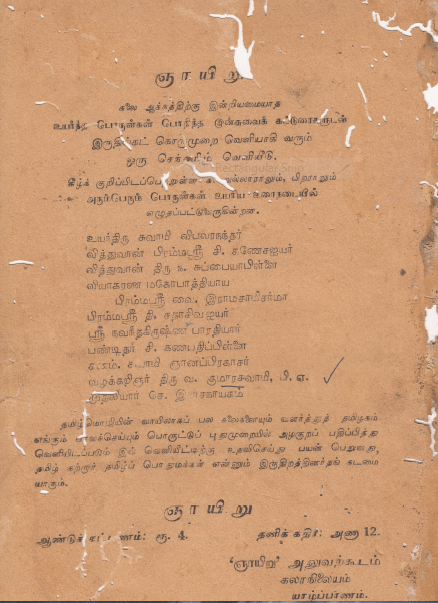 ஞாயிறு
கலை ஆக்கத்திற்கு இன்றியமையாத
உயர்ந்த பொருள்கள் பொறிந்த முன்தவைக் கட்டுரைகளுடன்
இருதிங்கட் கொருமுறை வெளியாகி வரும்
ஒரு செந்தமிழ் வெளியீடு.
கீழ்க் குறிப்பிடப்பெற்றுள்ள பிறராலும்
அரும்பெரும் பொருள்கள் உயரிய உரைநடையில்
எழுதப்பட்டுவருகின்றன.
உயர்திரு சுவாமி விபுலாநந்தர்
வித்துவான் பிரம்மஸ்ரீ சி. கணேசஐயர்
வித்துவான் திரு ந. சுப்பையாபிள்ளை
வியாகரண மகோபாத்தியாய
பிரம்மஸ்ரீ வை. இராமசாமிசர்மா
பிரம்மஸ்ரீ தி. சதாசிவஐயர்
ஸ்ரீ நவநீதகிருஷ்ண பாரதியார்
பண்டிதர் சி. கணபதிப்பிள்ளை
சுவாமி ஞானப்பிரகாசர்
வழக்கறிஞர் திரு வ. குமாரசுவாமி, பி. ஏ.
முதலியார் செ. இராசநாயகம்
தமிழ்மொழியின் வாயிலாகப் பல கலைகளையும் வளர்த்துத் தமிழகம்
எங்கும் பரவச்செய்யும் பொருட்டுப் புதுமுறையில் அழகுறப் பதிப்பித்து
வெளியிடப்படும் இவ் வெளியீட்டிற்கு உதவிசெய்து பயன் பெறுவது,
தமிழ் கற்றார் தமிழ்ப் பொதுமக்கள் என்னும் இருதிறத்தினர்தங் கடமை
யாகும்.
ஞாயிறு
ஆண்டுக் கட்டணம்: ரூ. 4. தனிக் கதிர்: அணா 12.
'ஞாயிறு' அலுவற்கூடம்
கலாநிலையம்
யாழ்ப்பாணம்.